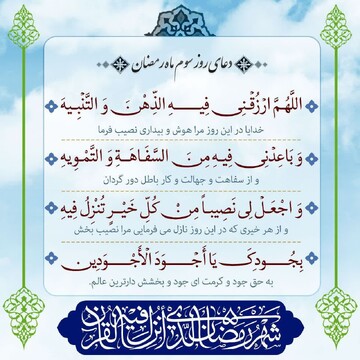 دعای روز سوم ماه رمضان
اللَّهُمَّ ارْزُقْنِي فِيهِ الذِّهْنَ وَ التَّنْبِيهَ
خدایا در این روز مرا هوش و بیداری نصیب فرما
وَ بَاعِدْنِي فِيهِ مِنَ السَّفَاهَةِ وَ التَّمْوِيهِ
و از سفاهت و جهالت و کار باطل دور گردان
وَ اجْعَلْ لِي نَصِيباً مِنْ كُلِّ خَيْرٍ تُنْزِلُ فِيهِ
و از هر خیری که در این روز نازل می فرمایی مرا نصیب بخش
بِجُودِكَ يَا أَجْوَدَ الْأَجْوَدِينَ
به حق جود و کرمت ای جود و بخشش دارترین عالم.
شهر رمضان الذی أنزل فیه القرآن